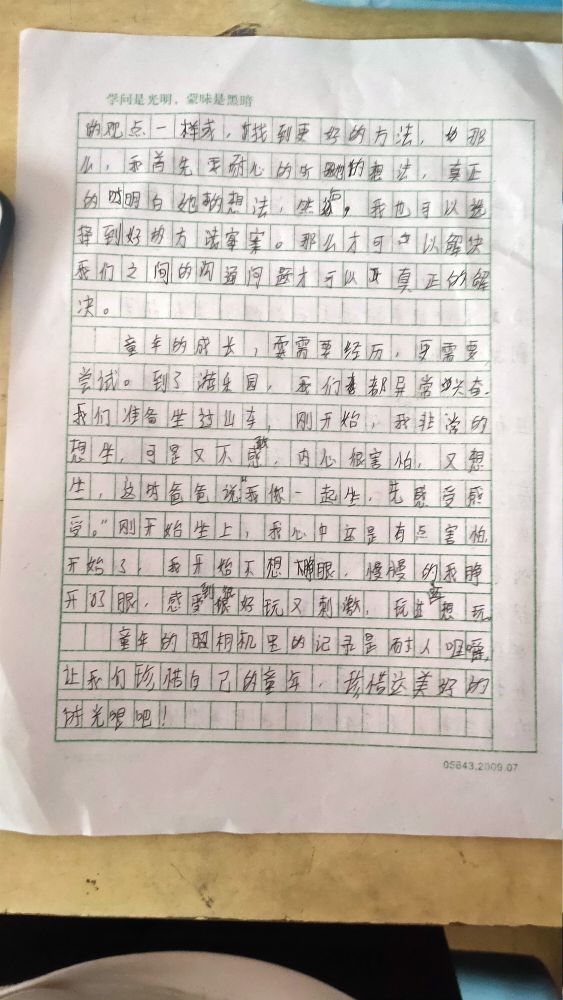 学问是光明，蒙昧是黑暗
的观点一样或，找到更好的方法，那
么，我首先要耐心的听她的想法，真正
的明白她的想法，然后，我也可以选
择到好的方法答案。那么才可以解决
我们之间的沟通问题才可以真正的解
决。
童年的成长，需要经历，更需要
尝试。到了游乐园，我们都异常兴奋，
我们准备坐过山车，刚开始，我非常的
想坐，可是又不敢，内心很害怕，又想
坐，这时爸爸说“我你一起坐，先感受感
受。”刚开始坐上，我心中还是有点害怕
开始了，我开始不想睁眼，慢慢的我睁
开了眼，感到很好玩又刺激，玩还想玩。
童年的照相机里的记录是耐人咀嚼，
让我们珍惜自己的童年，珍惜这美好的
时光吧！
05643.2009.07